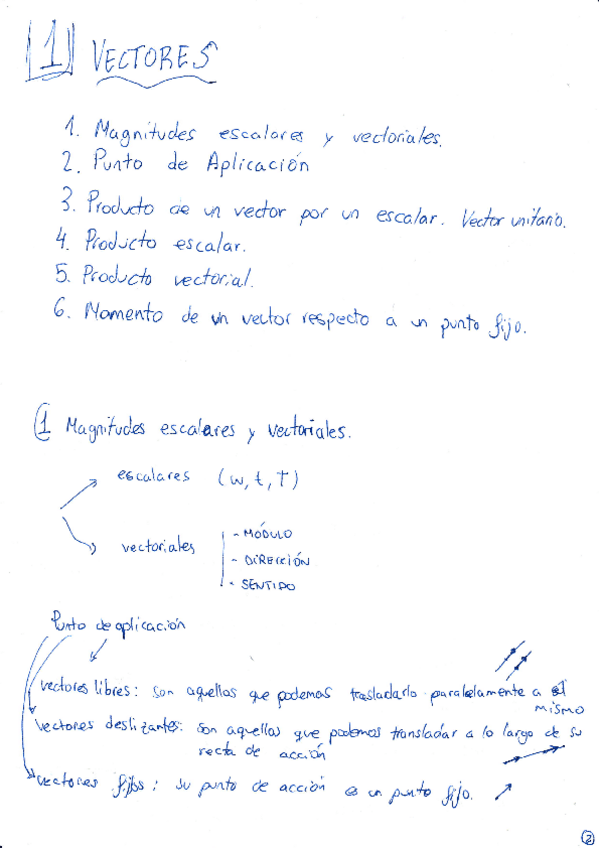 1 VECTORES
1. Magnitudes escalares y vectoriales.
2. Punto de Aplicación
3. Producto de un vector por un escalar. Vector unitario.
4. Producto escalar.
5. Producto vectorial.
6. Momento de un vector respecto a un punto fijo.
1 Magnitudes escalares y vectoriales.
escalares (w, t, T)
vectoriales
- MÓDULO
- DIRECCIÓN
- SENTIDO
Punto de aplicación
vectores libres: son aquellos que podemos trasladarlo paralelamente a el
mismo
vectores deslizantes: son aquellos que podemos transladar a lo largo de su
recta de acción
vectores fijos: su punto de acción es un punto fijo.
2